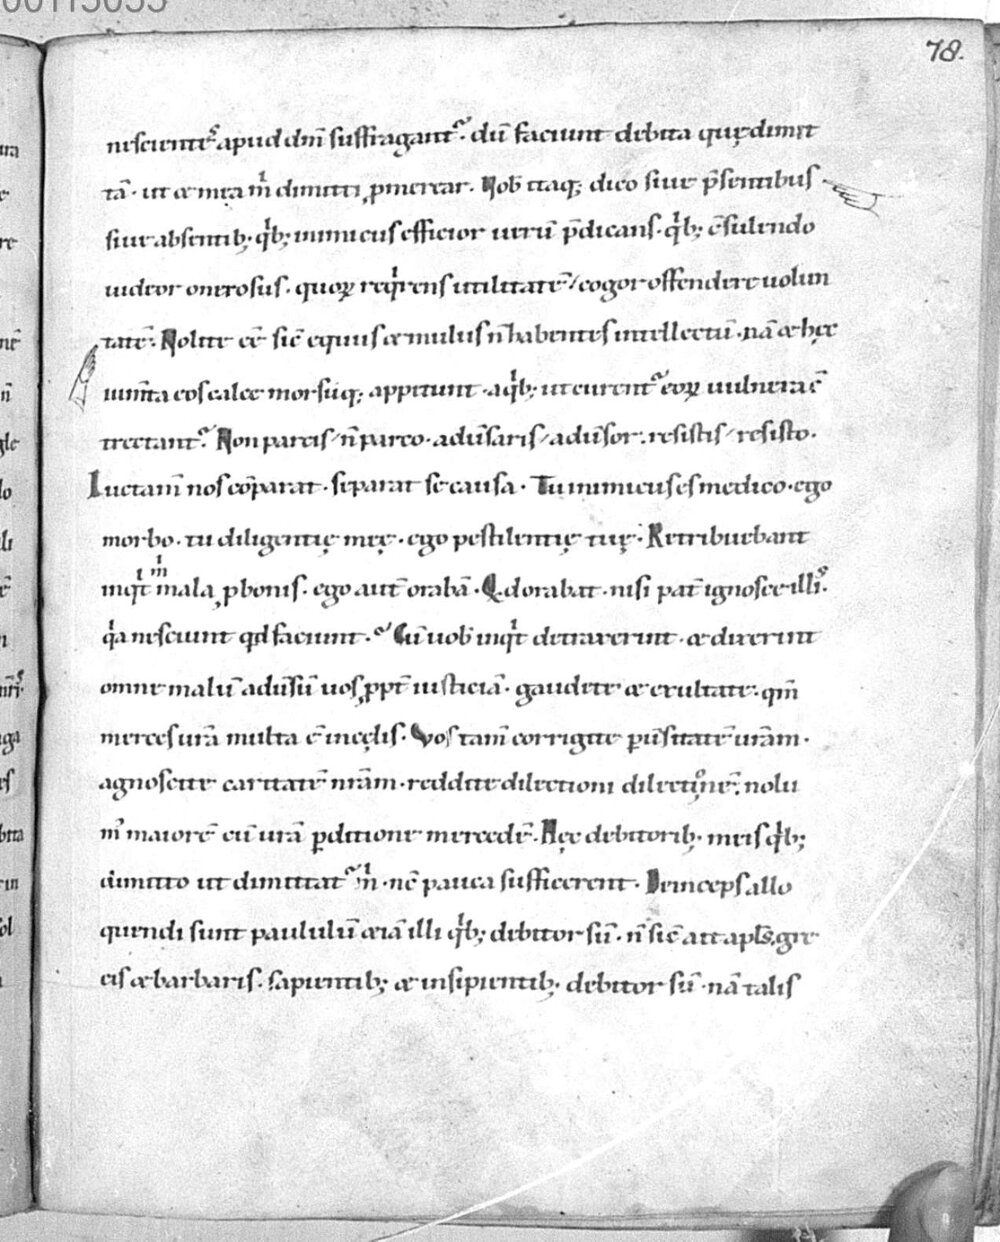 78.
nescient᷒ apud dn̄m suffragant᷒. dū faciunt debita quę dimit
tā. ut & mea m̄ dimitti ꝓmerear. Nob̄ itaq; dico siue p̄sentibus
siue absentib; qⁱb; inimicus efficior uerū p̄dicans. qⁱb; c̄sulendo
uideor onerosus. quoꝝ reqⁱrens utilitatē / cogor offendere uolun
tatē. Nolite eē sic̄ equus & mulus n̄ habentes intellectū. nā & hęc
ium̄ta eos calce morsuq; appetunt. aqⁱb; ut curent᷒ eoꝝ uulnera c̄
trectant᷒. Non parcis / n̄ parco. adūsaris / adūsor. resistis / resisto.
Luctam̄ nos cōparat. separat se causa. Tu inimicus es medico. ego
morbo. tu diligentię meę. ego pestilentię tuę. Retribuebant
inqⁱt mⁱ mala ꝓ bonis. ego aut̄ orabā. Qd orabat. nisi pat̄ ignosce illis.
qⁱa nesciunt qd faciunt. Cū uob̄ inqⁱt detraxerint. & dixerint
omne malū adūsū uos ꝓpt̄ iusticiā. gaudete & exultate. qm̄
merces urā multa ē in cęlis. Vos tam̄ corrigite ꝑūsitatē urām.
agnoscite caritatē nrām. reddite dilectioni dilectionē. nolu
m᷒ maiorē cū urā ꝑditione mercedē. Hęc debitorib; meis qⁱb;
dimitto ut dimittat᷒ mⁱ. nē pauca sufficerent. Deinceps allo
quendi sunt paululū &iā illi qⁱb; debitor sū. n̄ sic̄ ait apl̄s. gre
cis & barbaris. sapientib; & insipientib; debitor sū. nā talis